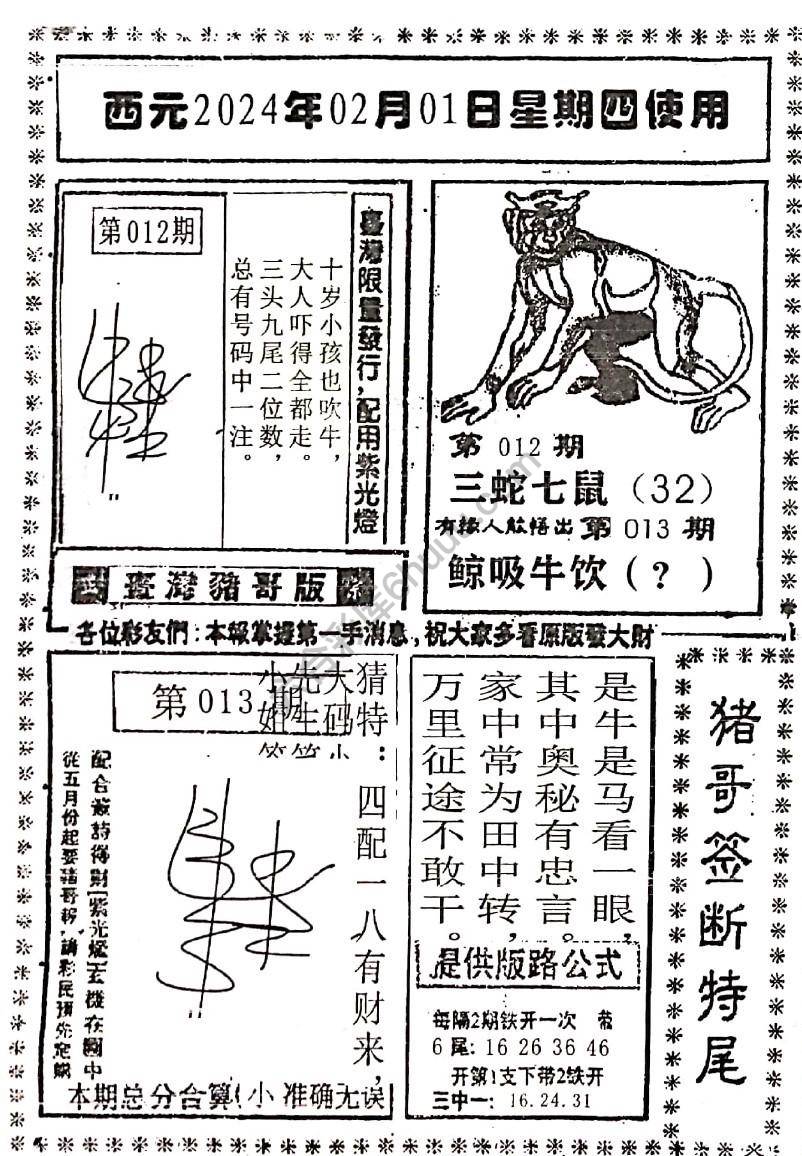 西元2024年02月01日星期四使用
第012期
臺灣限量發行，配用紫光燈
十岁小孩也吹牛，
大人吓得全都走。
三头九尾二位数，
总有号码中一注。
第 012 期
三蛇七鼠（32）
有缘人能悟出 第 013 期
鲸吸牛饮（？）
臺灣豬哥版
各位彩友們：本報掌握第一手消息，祝大家多看原版發大財
第013期
猜特：四配一八有财来，
大码
先生
小姐
配合籤詩得財 紫光燈玄機在圖中
從五月份起要豬哥報，請彩民預先定購
本期总分合算(小 准确无误
是牛是马看一眼，
其中奥秘有忠言。
家中常为田中转，
万里征途不敢干。
提供版路公式
每隔2期铁开一次 带
6尾：16 26 36 46
开第1支下带2铁开
三中一：16.24.31
猪哥签断特尾